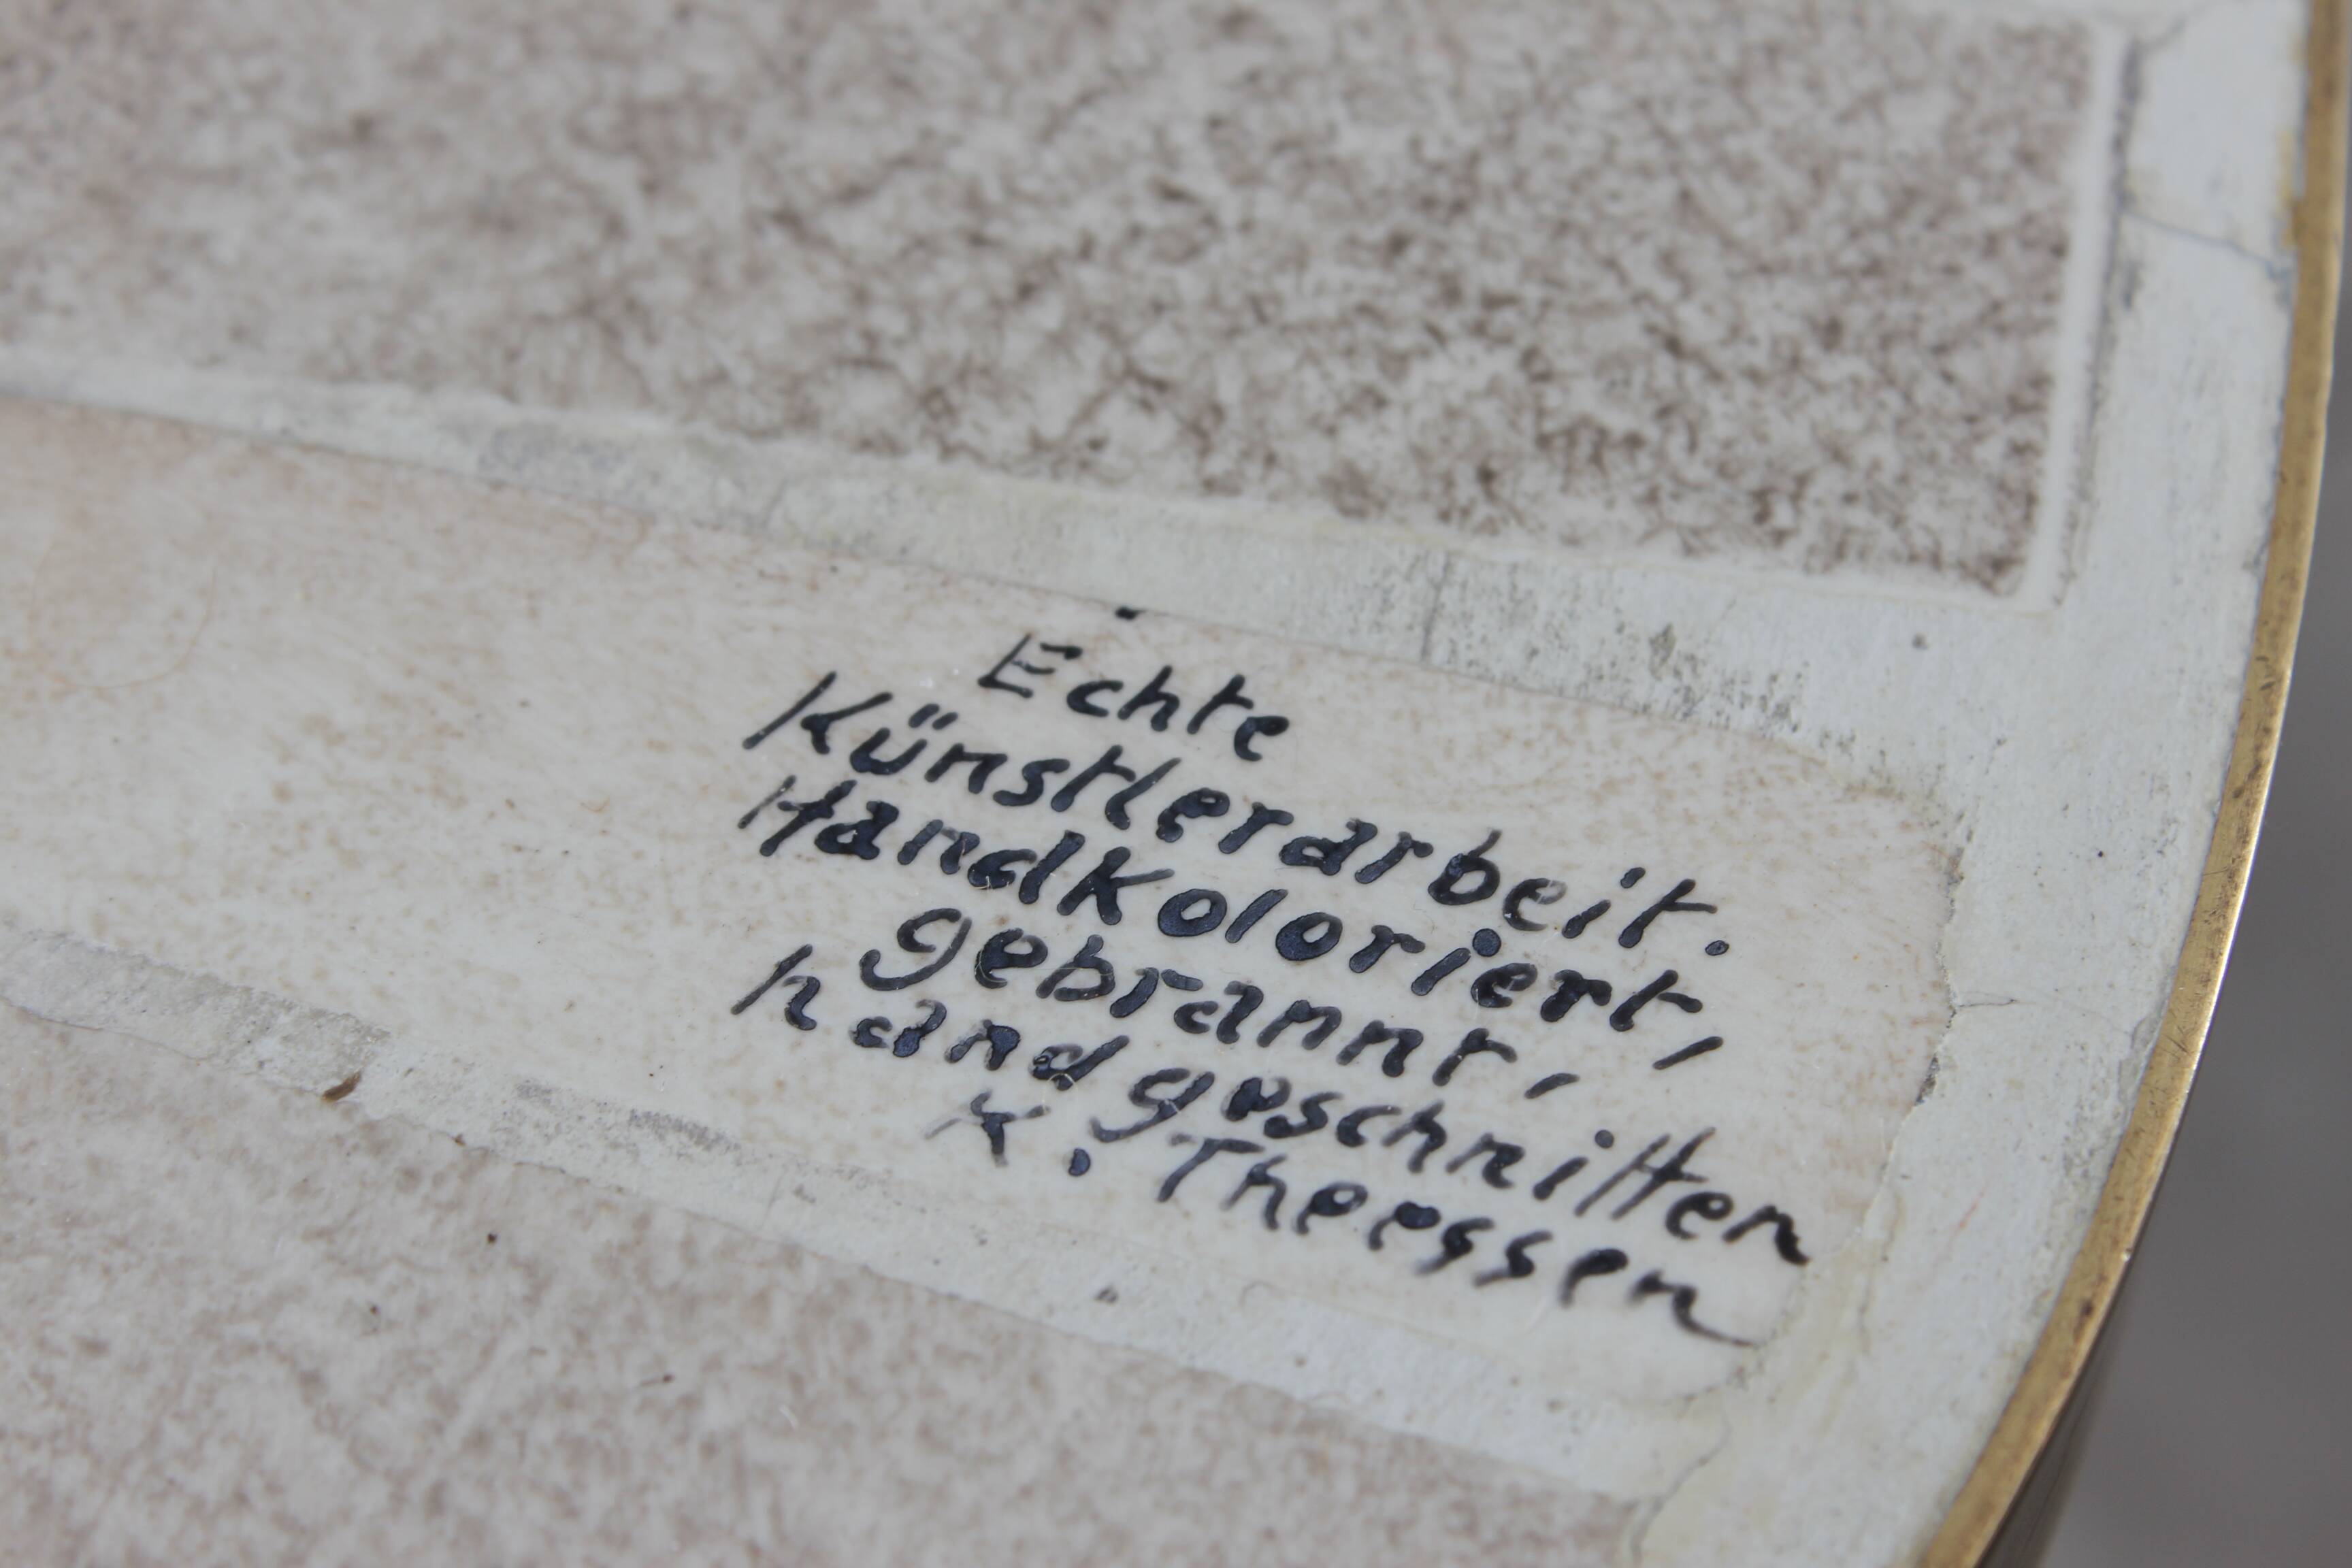 Echte
Künstlerarbeit.
Handkoloriert,
gebrannt,
handgeschnitten
K. Theessen